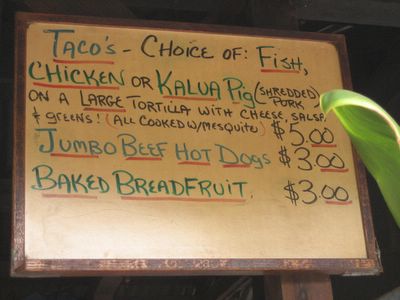 Taco's - Choice of: Fish,
Chicken or Kalua Pig (shredded pork)
on a large tortilla with cheese, salsa,
& greens! (all cooked w/mesquite) $5.00
Jumbo Beef Hot Dogs $3.00
Baked Breadfruit. $3.00